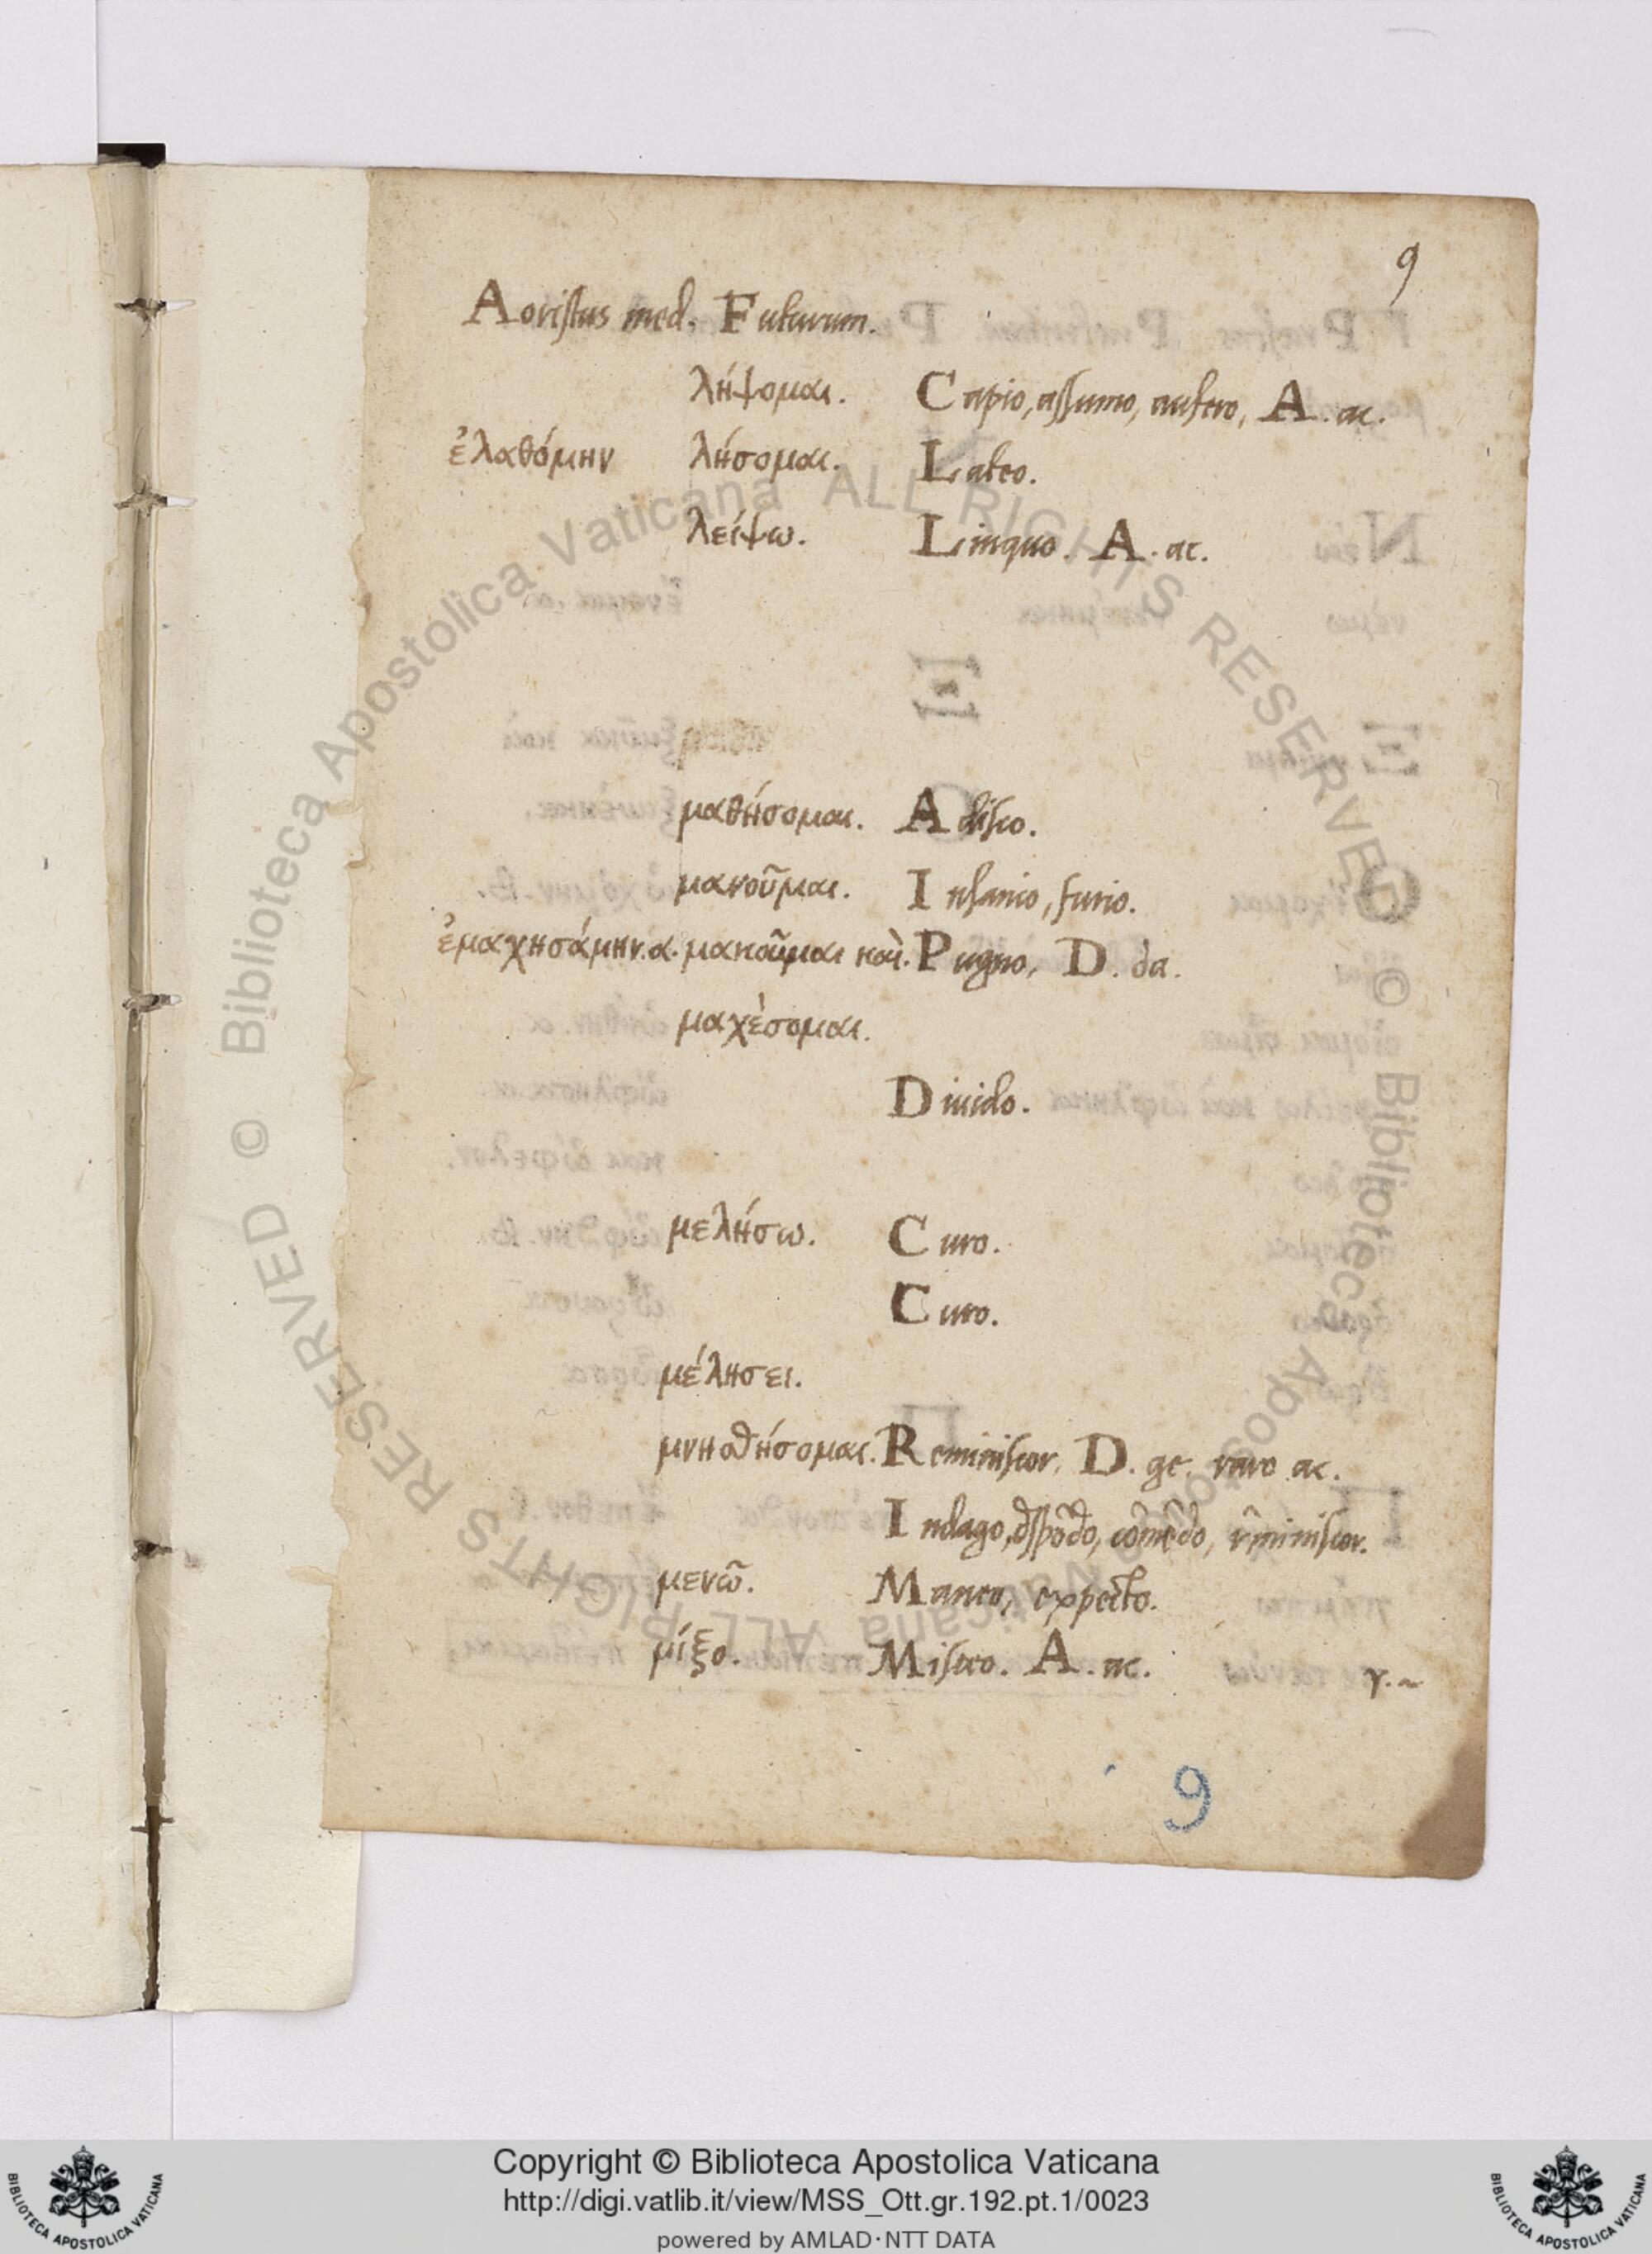 9
Aoristus med. Futurum.
λήψομαι. Capio, assumo, aufero, A. ac.
ἐλαθόμην λήσομαι. Lateo.
λείψω. Linquo. A. ac.
μαθήσομαι. Adisco.
μανοῦμαι. Insanio, furio.
ἐμαχησάμην.α. μαχοῦμαι καὶ. Pugno, D. da.
μαχέσομαι.
Diuido.
μελήσω. Curo.
Curo.
μέλησει.
μνησθήσομαι. Reminiscor, D. ge. raro ac.
Indago, r̃miniscor.
μενῶ. Maneo, expecto.
μίξο. Misceo. A. ac.
γ.~
9
© Biblioteca Apostolica Vaticana ALL RIGHTS RESERVED © Biblioteca Apostolica Vaticana ALL RIGHTS RESERVED
Copyright © Biblioteca Apostolica Vaticana
http://digi.vatlib.it/view/MSS_Ott.gr.192.pt.1/0023
powered by AMLAD·NTT DATA
BIBLIOTECA APOSTOLICA VATICANA
BIBLIOTECA APOSTOLICA VATICANA